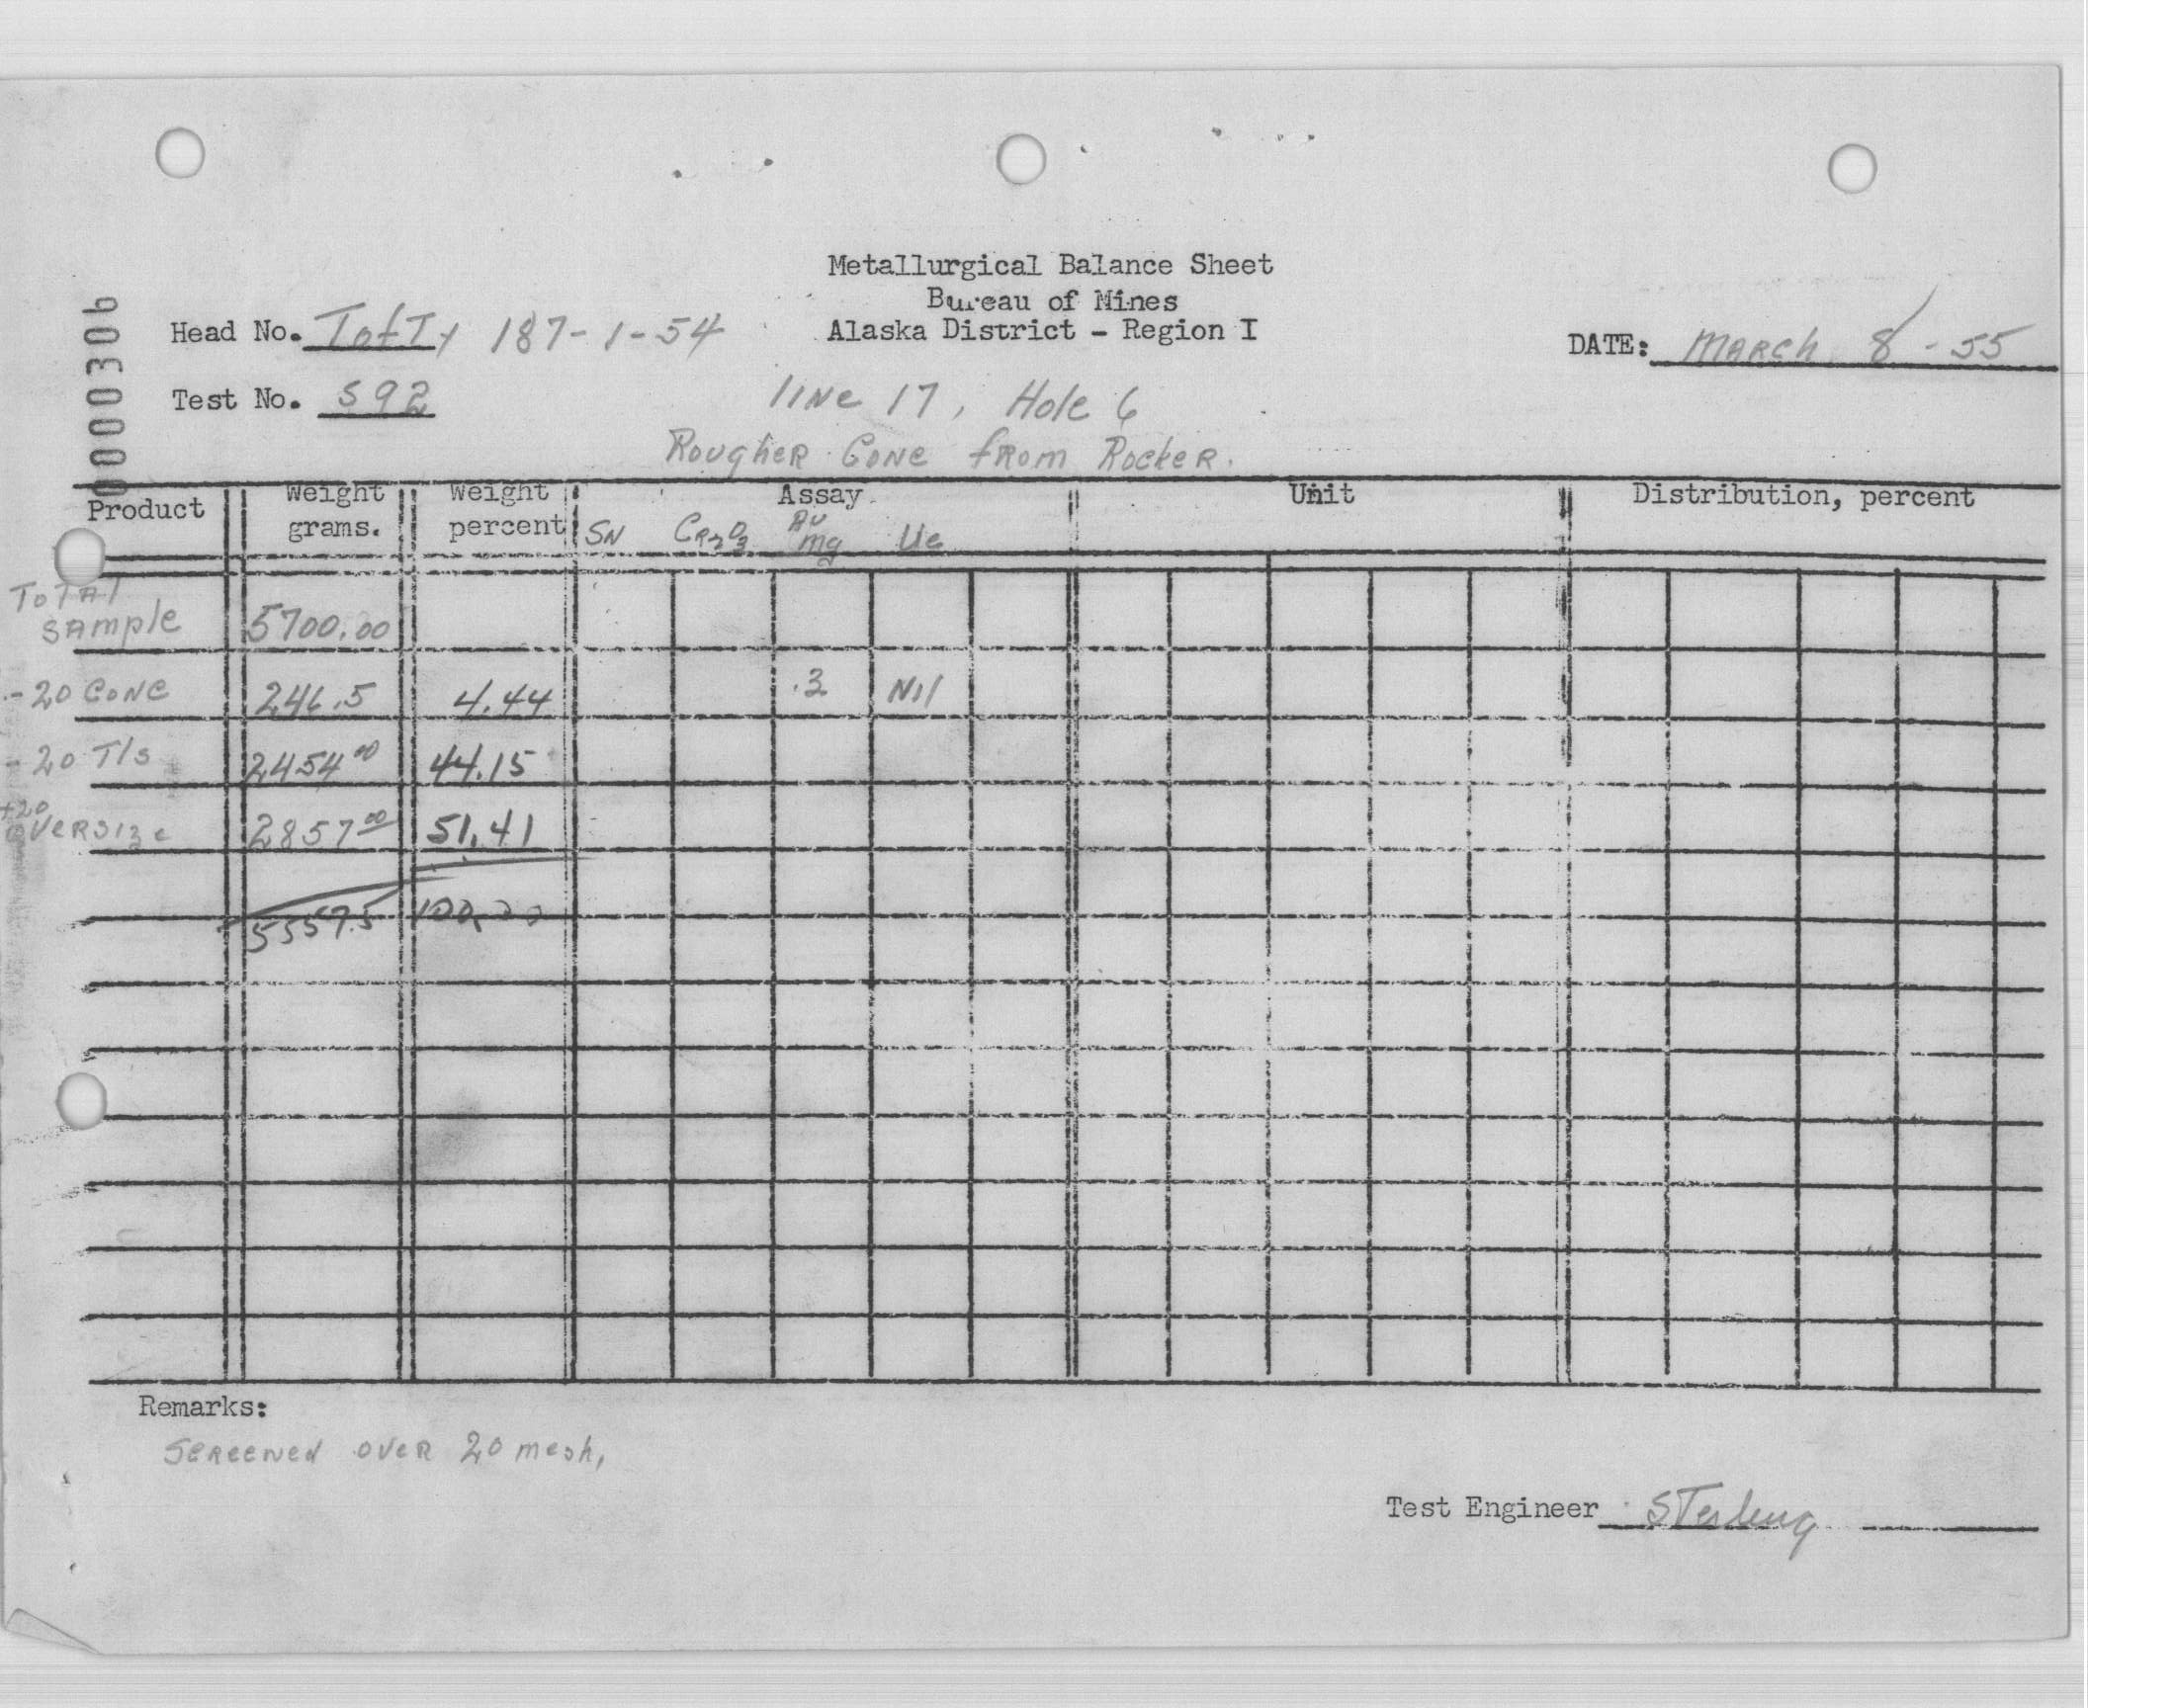 0000306
Metallurgical Balance Sheet
Bureau of Mines
Alaska District - Region I
Head No. Tofty 187-1-54
DATE: MARCH 8 - 55
Test No. 592
line 17, Hole 6
Rougher Conc from Rocker.
Product Weight grams. Weight percent Assay Unit Distribution, percent
SN Cr2O3 Au mg Ue
Total Sample 5700.00
-20 Conc 246.5 4.44 .3 Nil
-20 T/s 2454 00 44.15
+20 oversize 2857 00 51.41
5557.5 100.00
Remarks:
Screened over 20 mesh,
Test Engineer Sterling